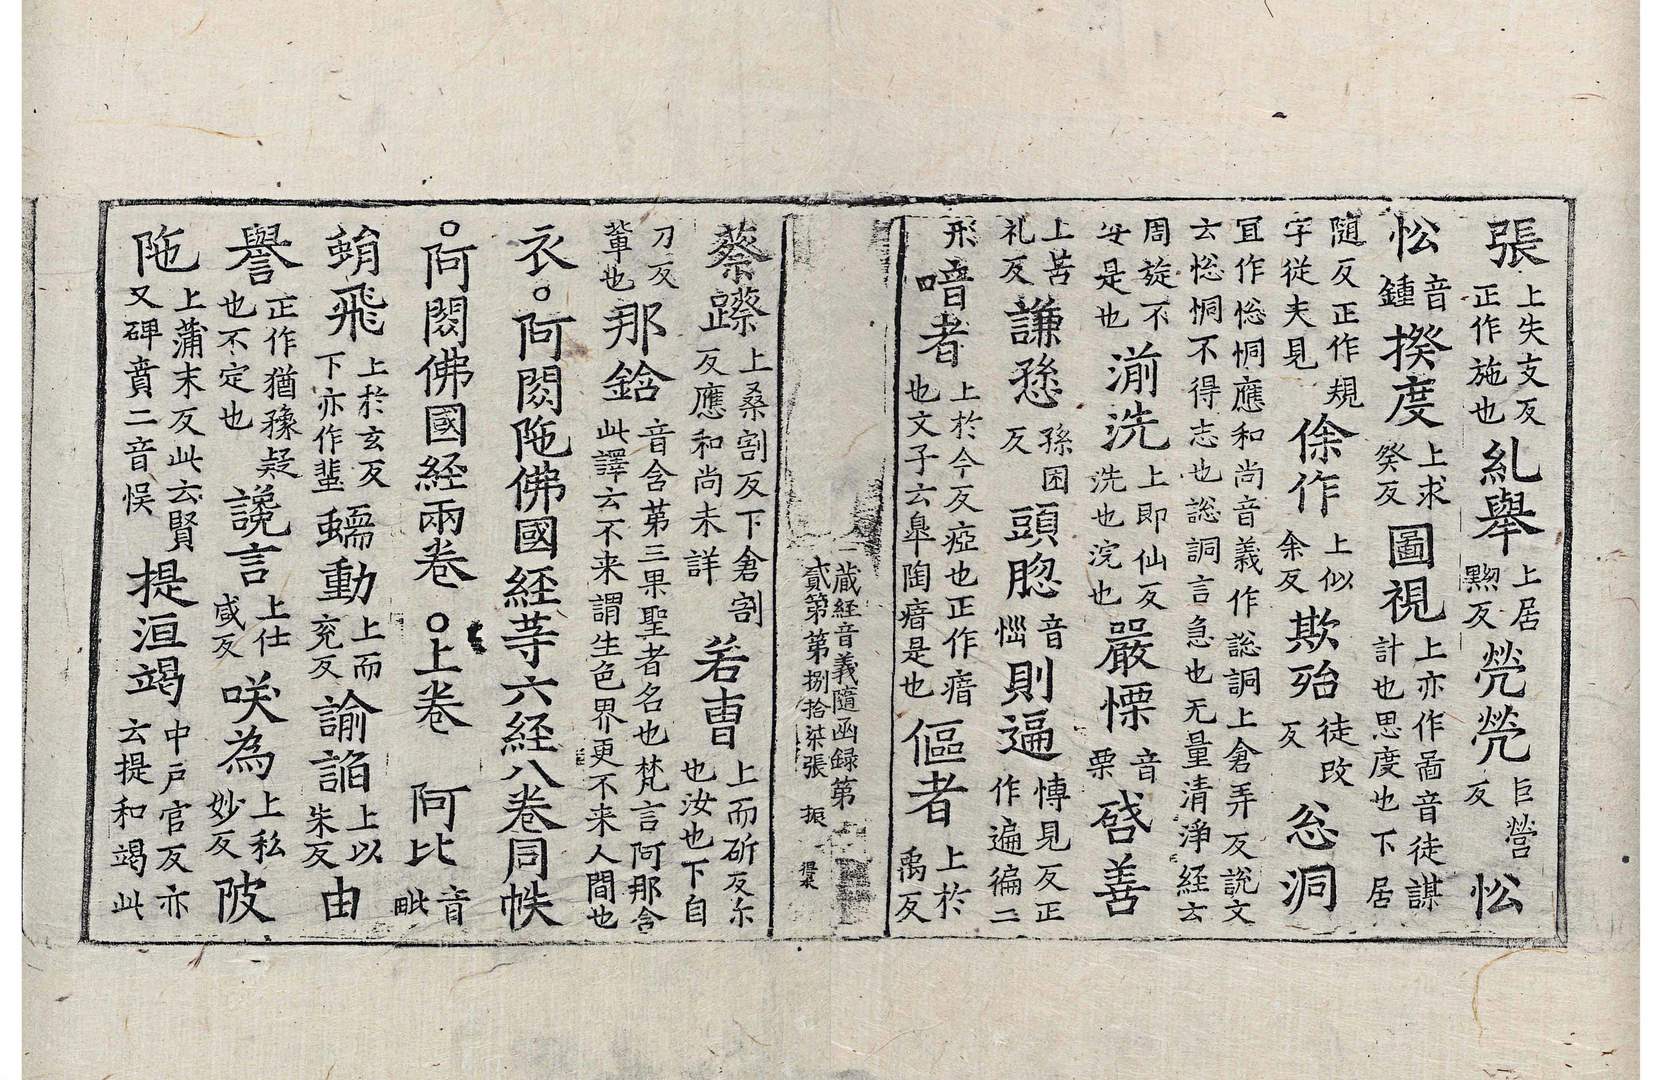 張上失支反正作施也糺舉上居黝反煢煢巨營反忪
忪音鍾揆度上求癸反圖視上亦作啚音徒謀計也思度也下居
隨反正作規字從夫見俆作上似余反欺殆徒改反忩洞
宜作揔恫應和尚音義作諗詷上倉弄反說文云揔恫不得志也諗詷言急也无量清淨経云
周旋不安是也湔洗上即仙反洗也浣也嚴慄音栗啓善
上苦礼反謙愻孫困反頭𦛁音𢙺則逼愽見反正作遍徧二
形喑者上於今反瘂也正作瘖也文子云臯陶瘖是也傴者上於禹反
藏経音義隨函録第貳第第捌拾柒張 振
蔡蹽上桑割反下倉割反應和尚未詳若曺上而斫反尔也汝也下自
刀反軰也那鋡音含苐三果聖者名也梵言阿那含此譯云不来謂生色界更不来人間也
衣。阿閦陁佛國経䓁六経八卷同帙
○阿閦佛國経兩卷 ○上卷 阿比音毗
蜎飛上於玄反下亦作蜚蠕動上而兖反諭諂上以朱反由
譽正作猶豫疑也不定也讒言上仕咸反咲為上私妙反陂
陁上蒲末反此云賢又碑賁二音悮提洹竭中戶官反亦云提和竭此